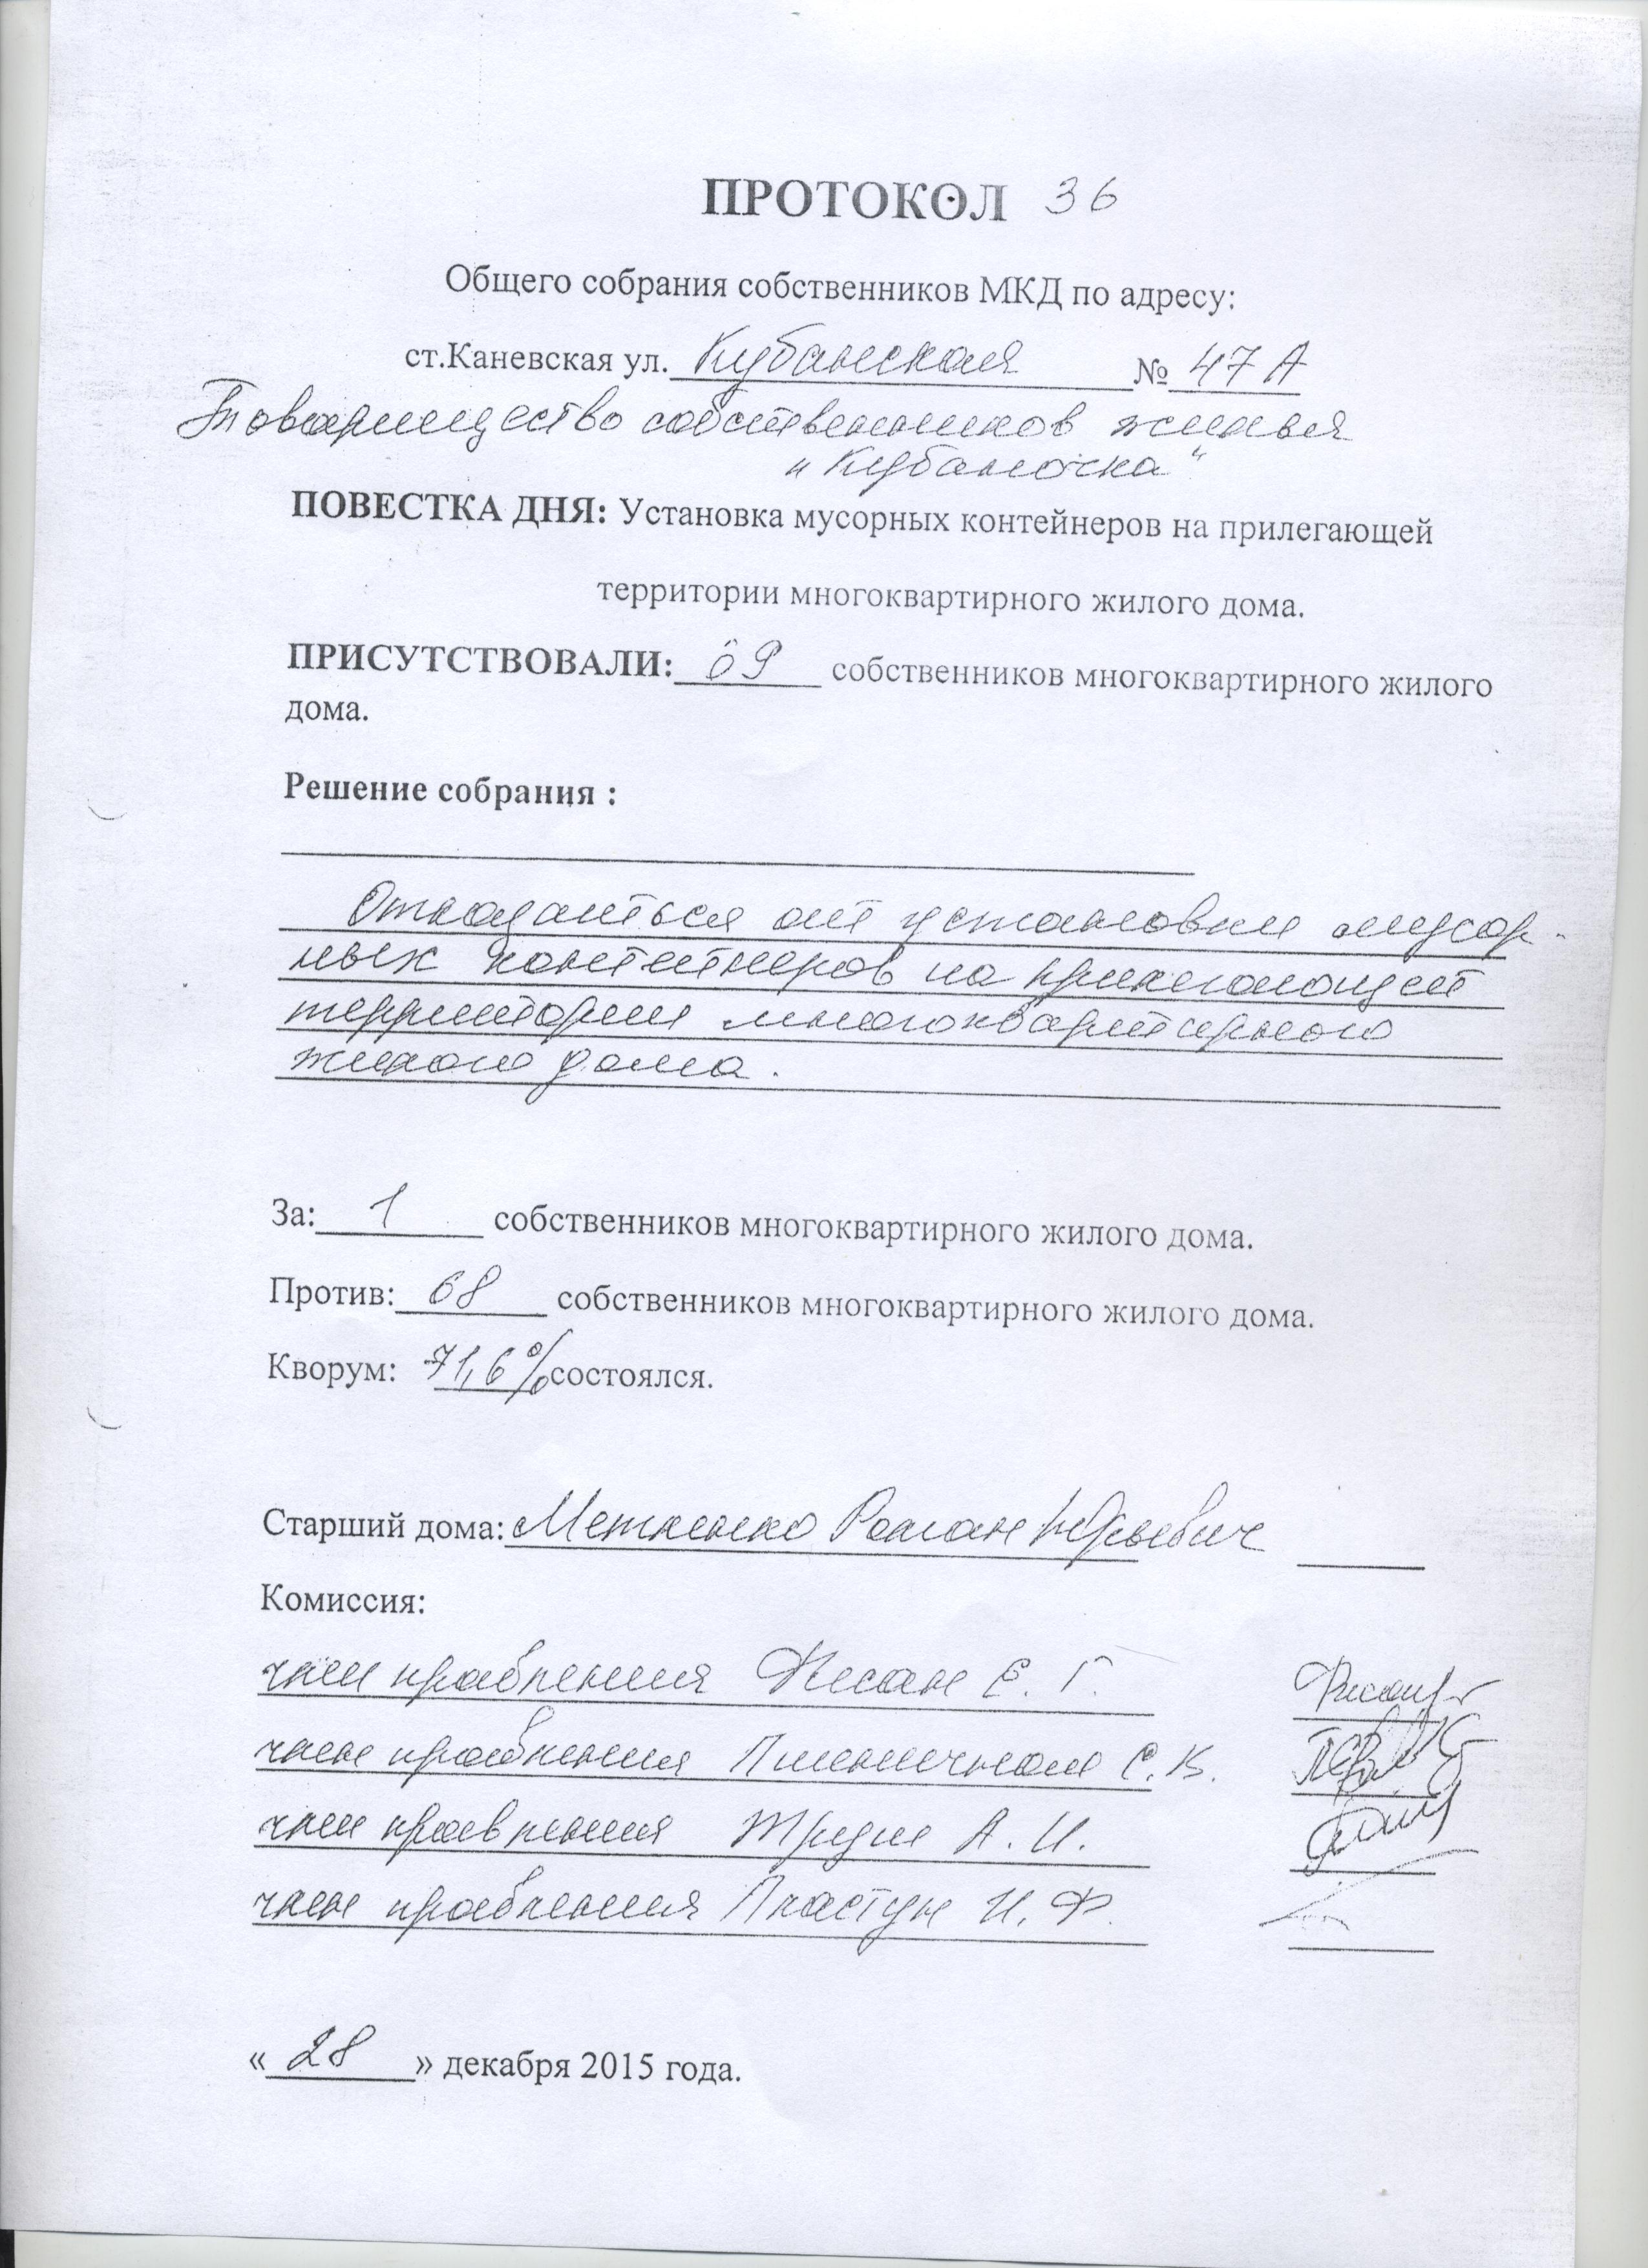 ПРОТОКОЛ 36
Общего собрания собственников МКД по адресу:
ст.Каневская ул. Кубанская № 47 А
Товарищество собственников жилья
"Кубаночка"
ПОВЕСТКА ДНЯ: Установка мусорных контейнеров на прилегающей
территории многоквартирного жилого дома.
ПРИСУТСТВОВАЛИ: 69 собственников многоквартирного жилого
дома.
Решение собрания :
Отказаться от установки мусор-
ных контейнеров на прилегающей
территории многоквартирного
жилого дома.
За: 1 собственников многоквартирного жилого дома.
Против: 68 собственников многоквартирного жилого дома.
Кворум: 71,6% состоялся.
Старший дома: Роман Юрьевич
Комиссия:
член правления Фисан Е. Г.
член правления С.К.
член правления А. И.
член правления Пластун И. Ф.
« 28 » декабря 2015 года.